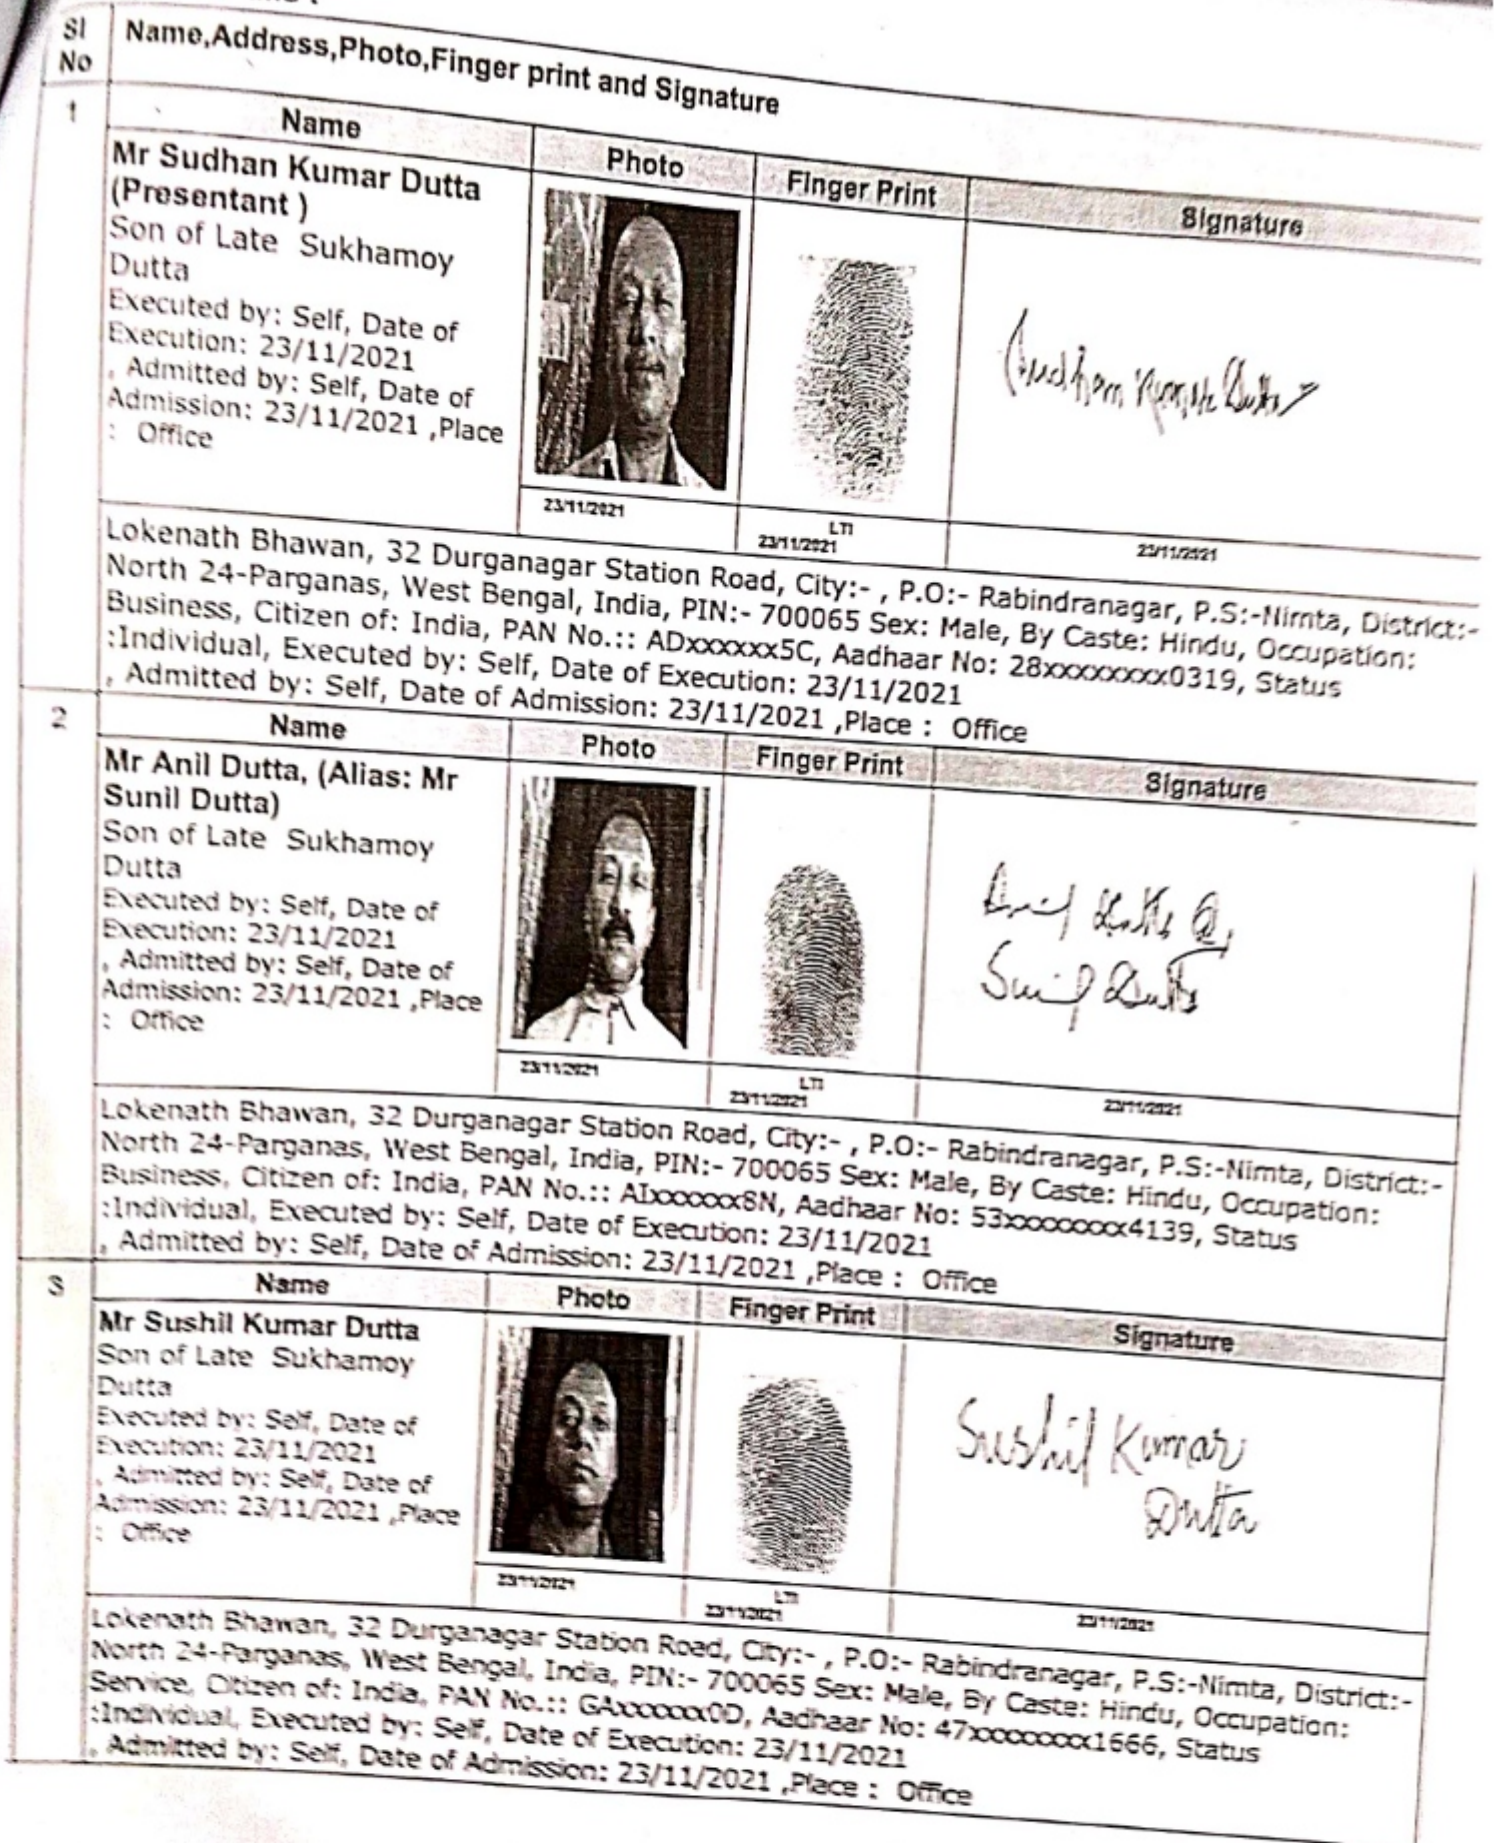 Sl
No
Name,Address,Photo,Finger print and Signature
1
Name
Photo
Finger Print
Signature
Mr Sudhan Kumar Dutta
(Presentant )
Son of Late Sukhamoy
Dutta
Executed by: Self, Date of
Execution: 23/11/2021
, Admitted by: Self, Date of
Admission: 23/11/2021 ,Place
: Office
23/11/2021
LTI
23/11/2021
23/11/2021
Lokenath Bhawan, 32 Durganagar Station Road, City:- , P.O:- Rabindranagar, P.S:-Nimta, District:-
North 24-Parganas, West Bengal, India, PIN:- 700065 Sex: Male, By Caste: Hindu, Occupation:
Business, Citizen of: India, PAN No.:: ADxxxxxx5C, Aadhaar No: 28xxxxxxxx0319, Status
:Individual, Executed by: Self, Date of Execution: 23/11/2021
, Admitted by: Self, Date of Admission: 23/11/2021 ,Place : Office
2
Name
Photo
Finger Print
Signature
Mr Anil Dutta, (Alias: Mr
Sunil Dutta)
Son of Late Sukhamoy
Dutta
Executed by: Self, Date of
Execution: 23/11/2021
, Admitted by: Self, Date of
Admission: 23/11/2021 ,Place
: Office
Anil Dutta
Sunil Dutta
23/11/2021
LTI
23/11/2021
23/11/2021
Lokenath Bhawan, 32 Durganagar Station Road, City:- , P.O:- Rabindranagar, P.S:-Nimta, District:-
North 24-Parganas, West Bengal, India, PIN:- 700065 Sex: Male, By Caste: Hindu, Occupation:
Business, Citizen of: India, PAN No.:: AIxxxxxx8N, Aadhaar No: 53xxxxxxxx4139, Status
:Individual, Executed by: Self, Date of Execution: 23/11/2021
, Admitted by: Self, Date of Admission: 23/11/2021 ,Place : Office
3
Name
Photo
Finger Print
Signature
Mr Sushil Kumar Dutta
Son of Late Sukhamoy
Dutta
Executed by: Self, Date of
Execution: 23/11/2021
, Admitted by: Self, Date of
Admission: 23/11/2021 ,Place
: Office
Sushil Kumar
Dutta
23/11/2021
LTI
23/11/2021
23/11/2021
Lokenath Bhawan, 32 Durganagar Station Road, City:- , P.O:- Rabindranagar, P.S:-Nimta, District:-
North 24-Parganas, West Bengal, India, PIN:- 700065 Sex: Male, By Caste: Hindu, Occupation:
Service, Citizen of: India, PAN No.:: GAxxxxxx0D, Aadhaar No: 47xxxxxxxx1666, Status
:Individual, Executed by: Self, Date of Execution: 23/11/2021
, Admitted by: Self, Date of Admission: 23/11/2021 ,Place : Office